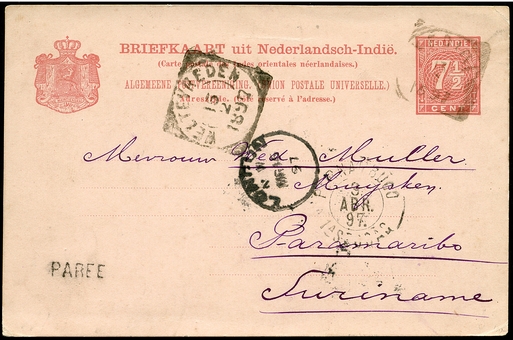 BRIEFKAART uit Nederlandsch-Indië.
(Carte postale des Indes orientales néerlandaises.)
ALGEMEENE POSTVEREENIGING. (UNION POSTALE UNIVERSELLE.)
Adreszijde. (Côté réservé à l'adresse.)
NED-INDIË
7½
CENT
WELTEVREDEN
15
2
1897
LONDON
97
ABR.
97
Mevrouw Wed Muller
Muijsken
Paramaribo
Suriname
PAREE